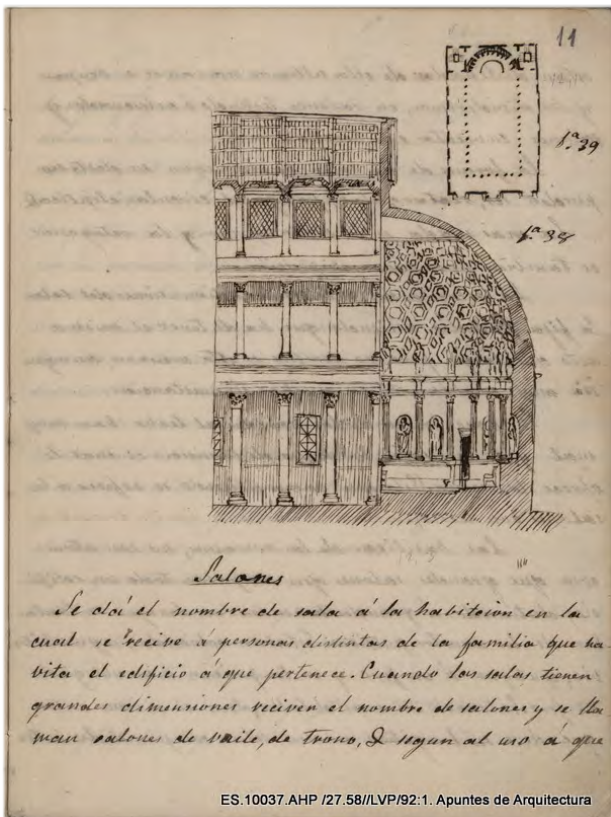 11
f.ª 39
f.ª 38
Salones
Se dá el nombre de sala á la habitcion en la
cual se recive á personas distintas de la familia que ha-
vita el edificio á que pertenece. Cuando las salas tienen
grandes dimensiones reciven el nombre de salones y se lla
man salones de vaile, de trono, & segun al uso á que
ES.10037.AHP /27.58//LVP/92:1. Apuntes de Arquitectura